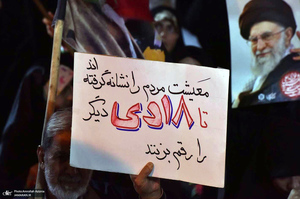 معیشت مردم را نشانه گرفته اند
تا ۱۸ دی دیگر
را رقم بزنند